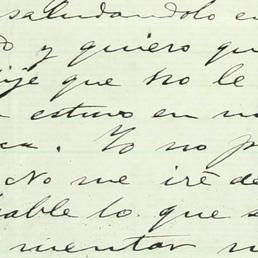 saludandolo en
y quiero que
que no le
estuvo en
. Yo no p
No me iré de
able lo que s
mentar